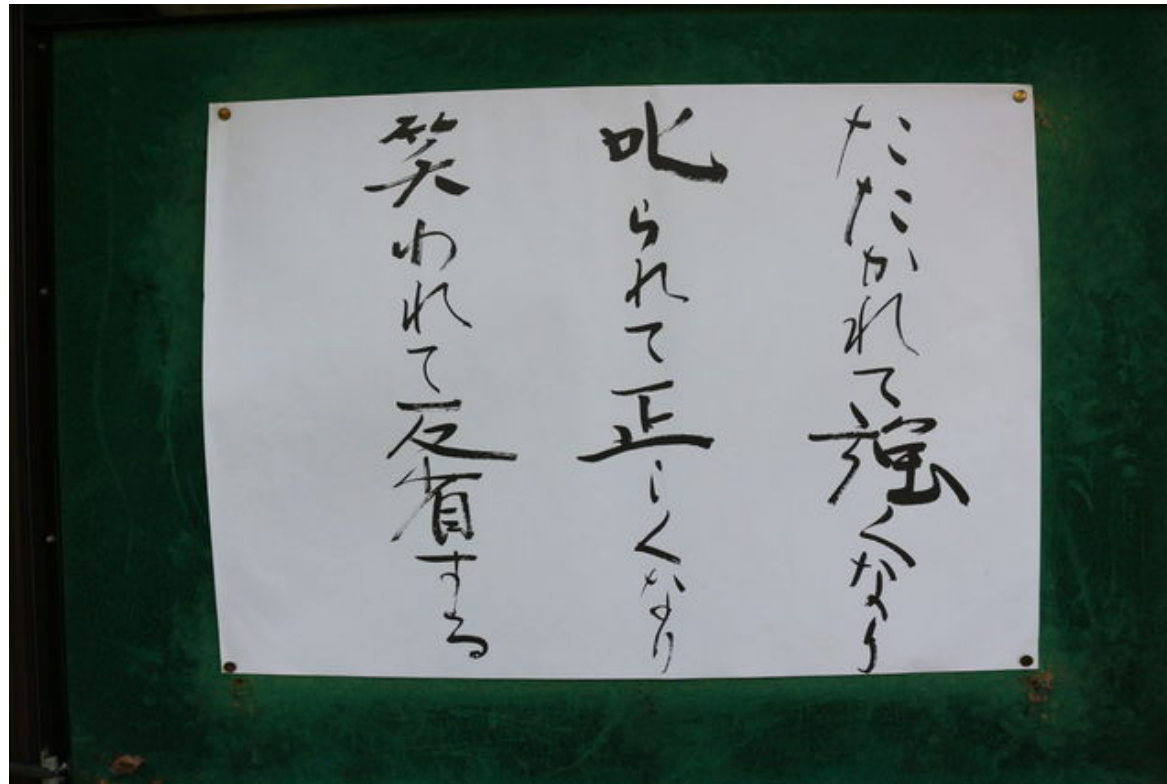 たたかれて強くなり
叱られて正しくなり
笑われて反省する